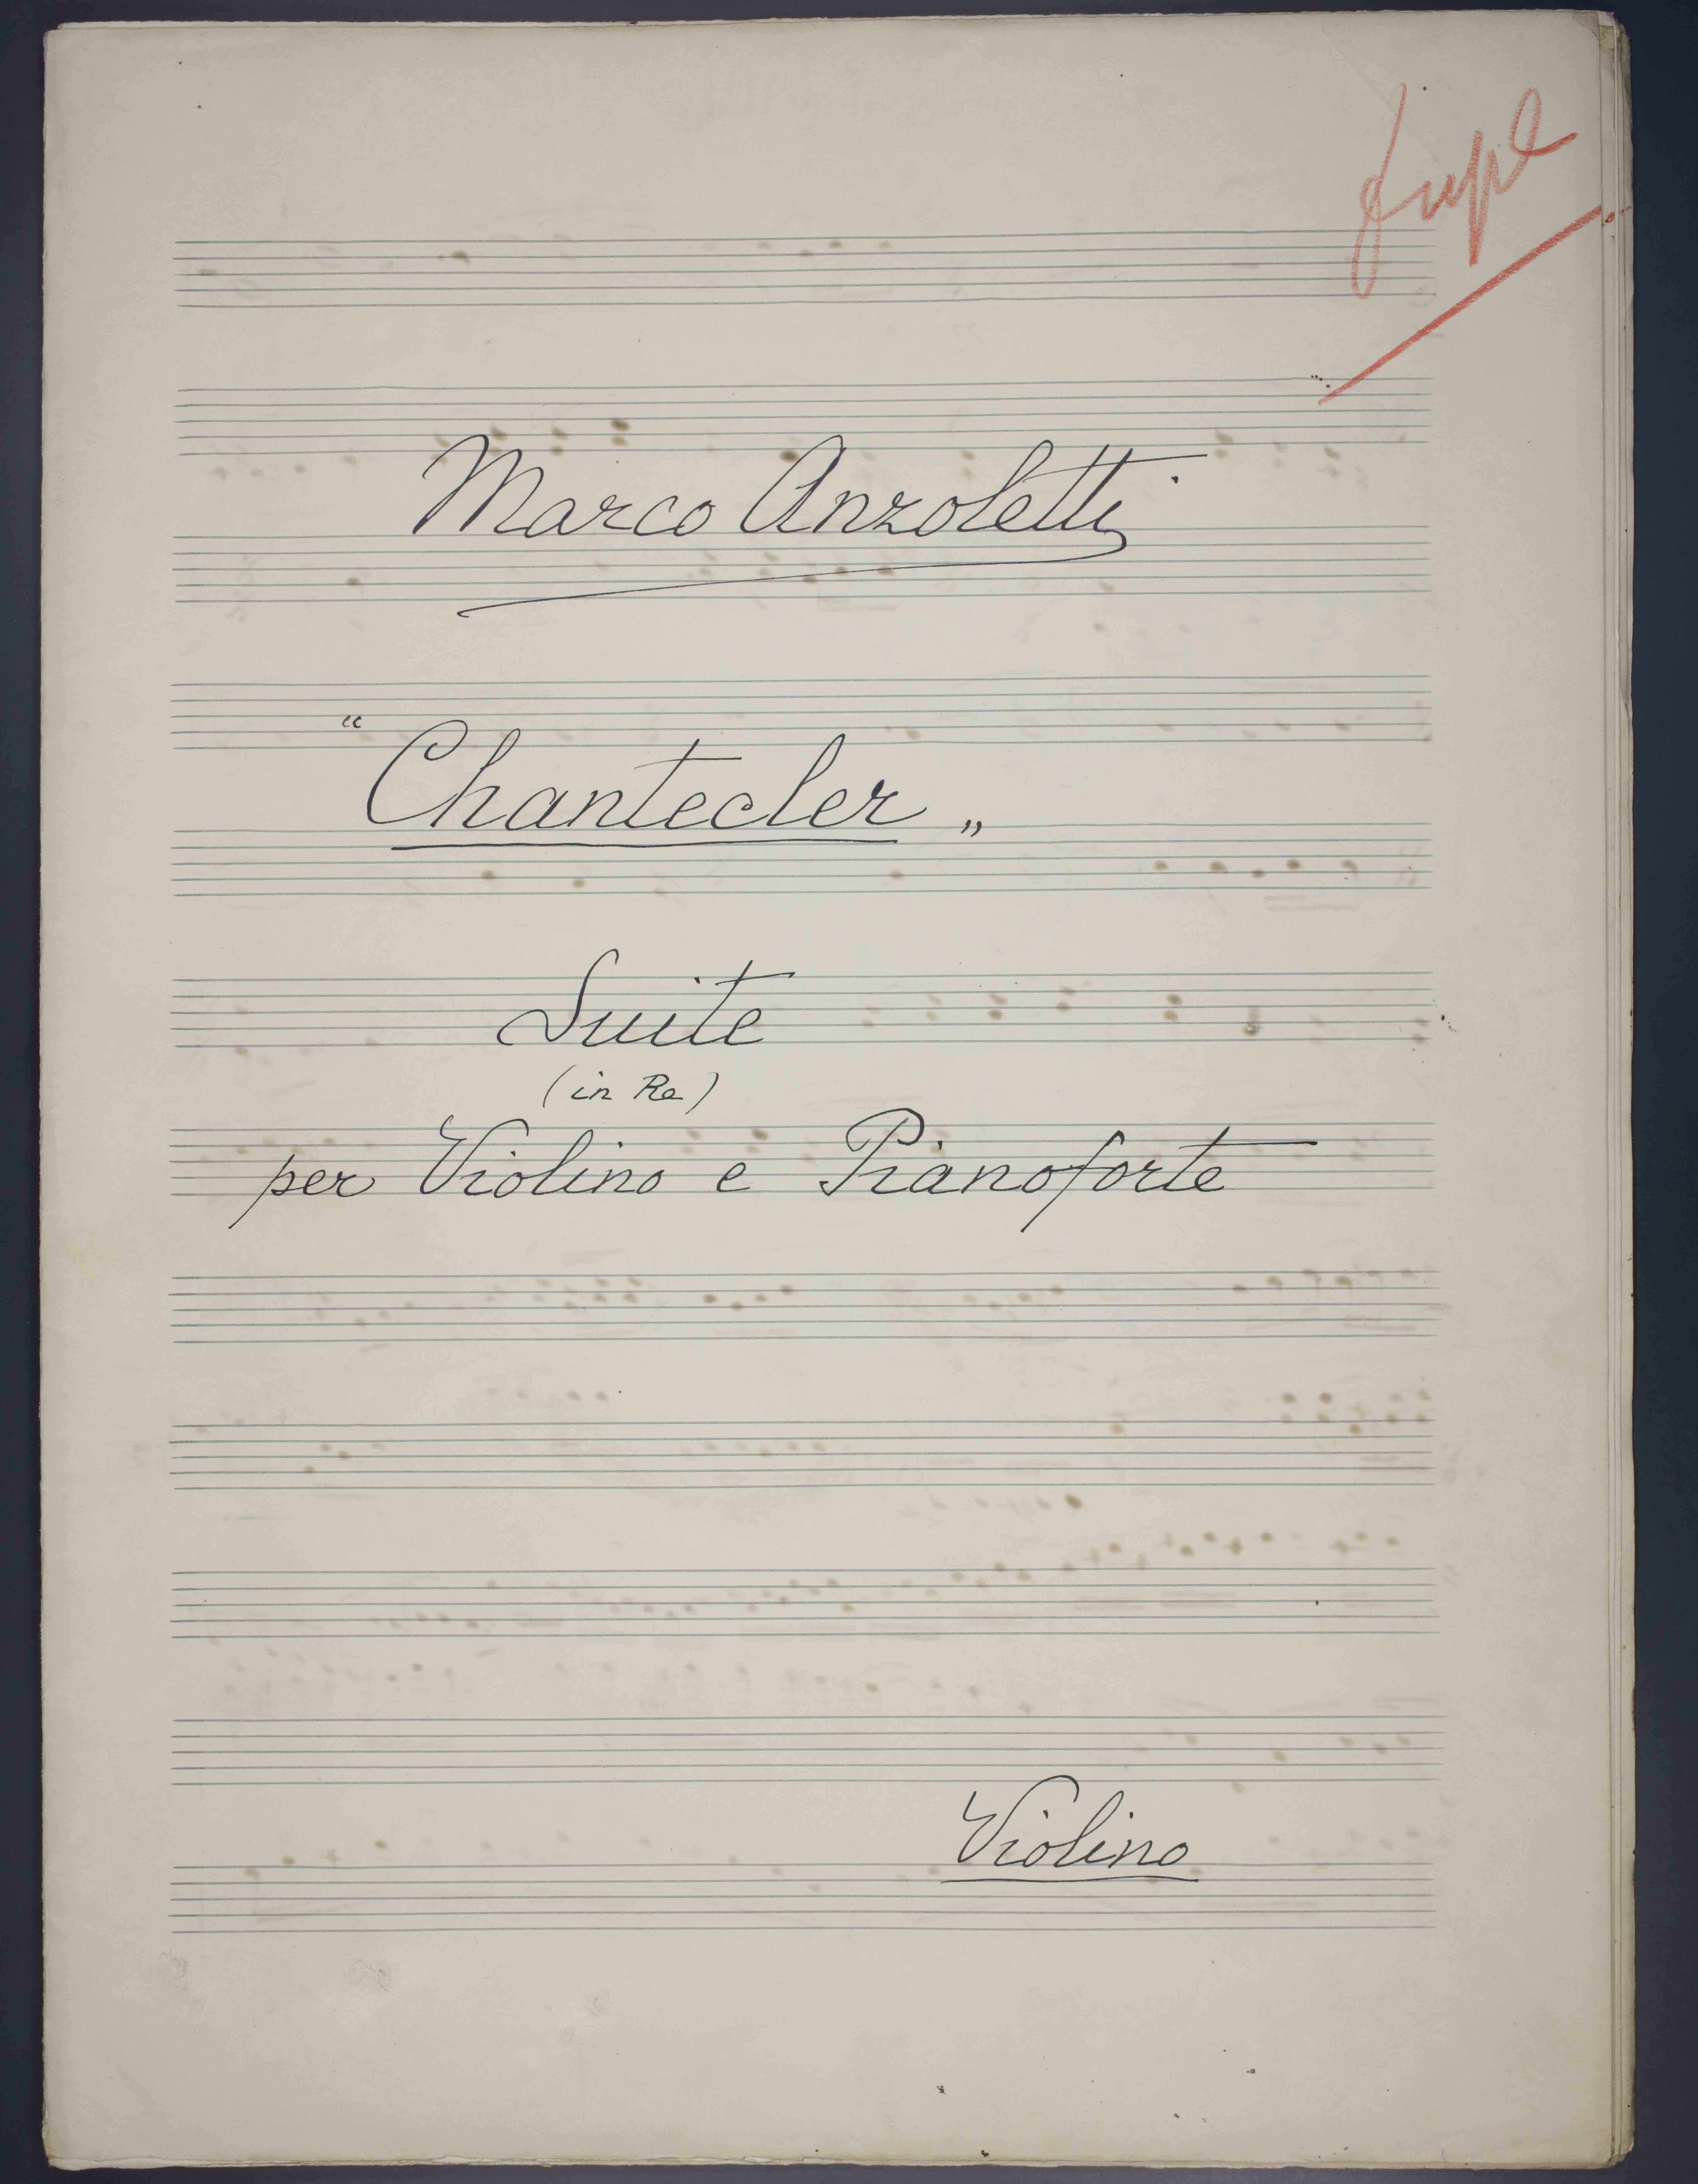 Marco Anzoletti
“Chantecler„
Suite
(in Re)
per Violino e Pianoforte
Violino